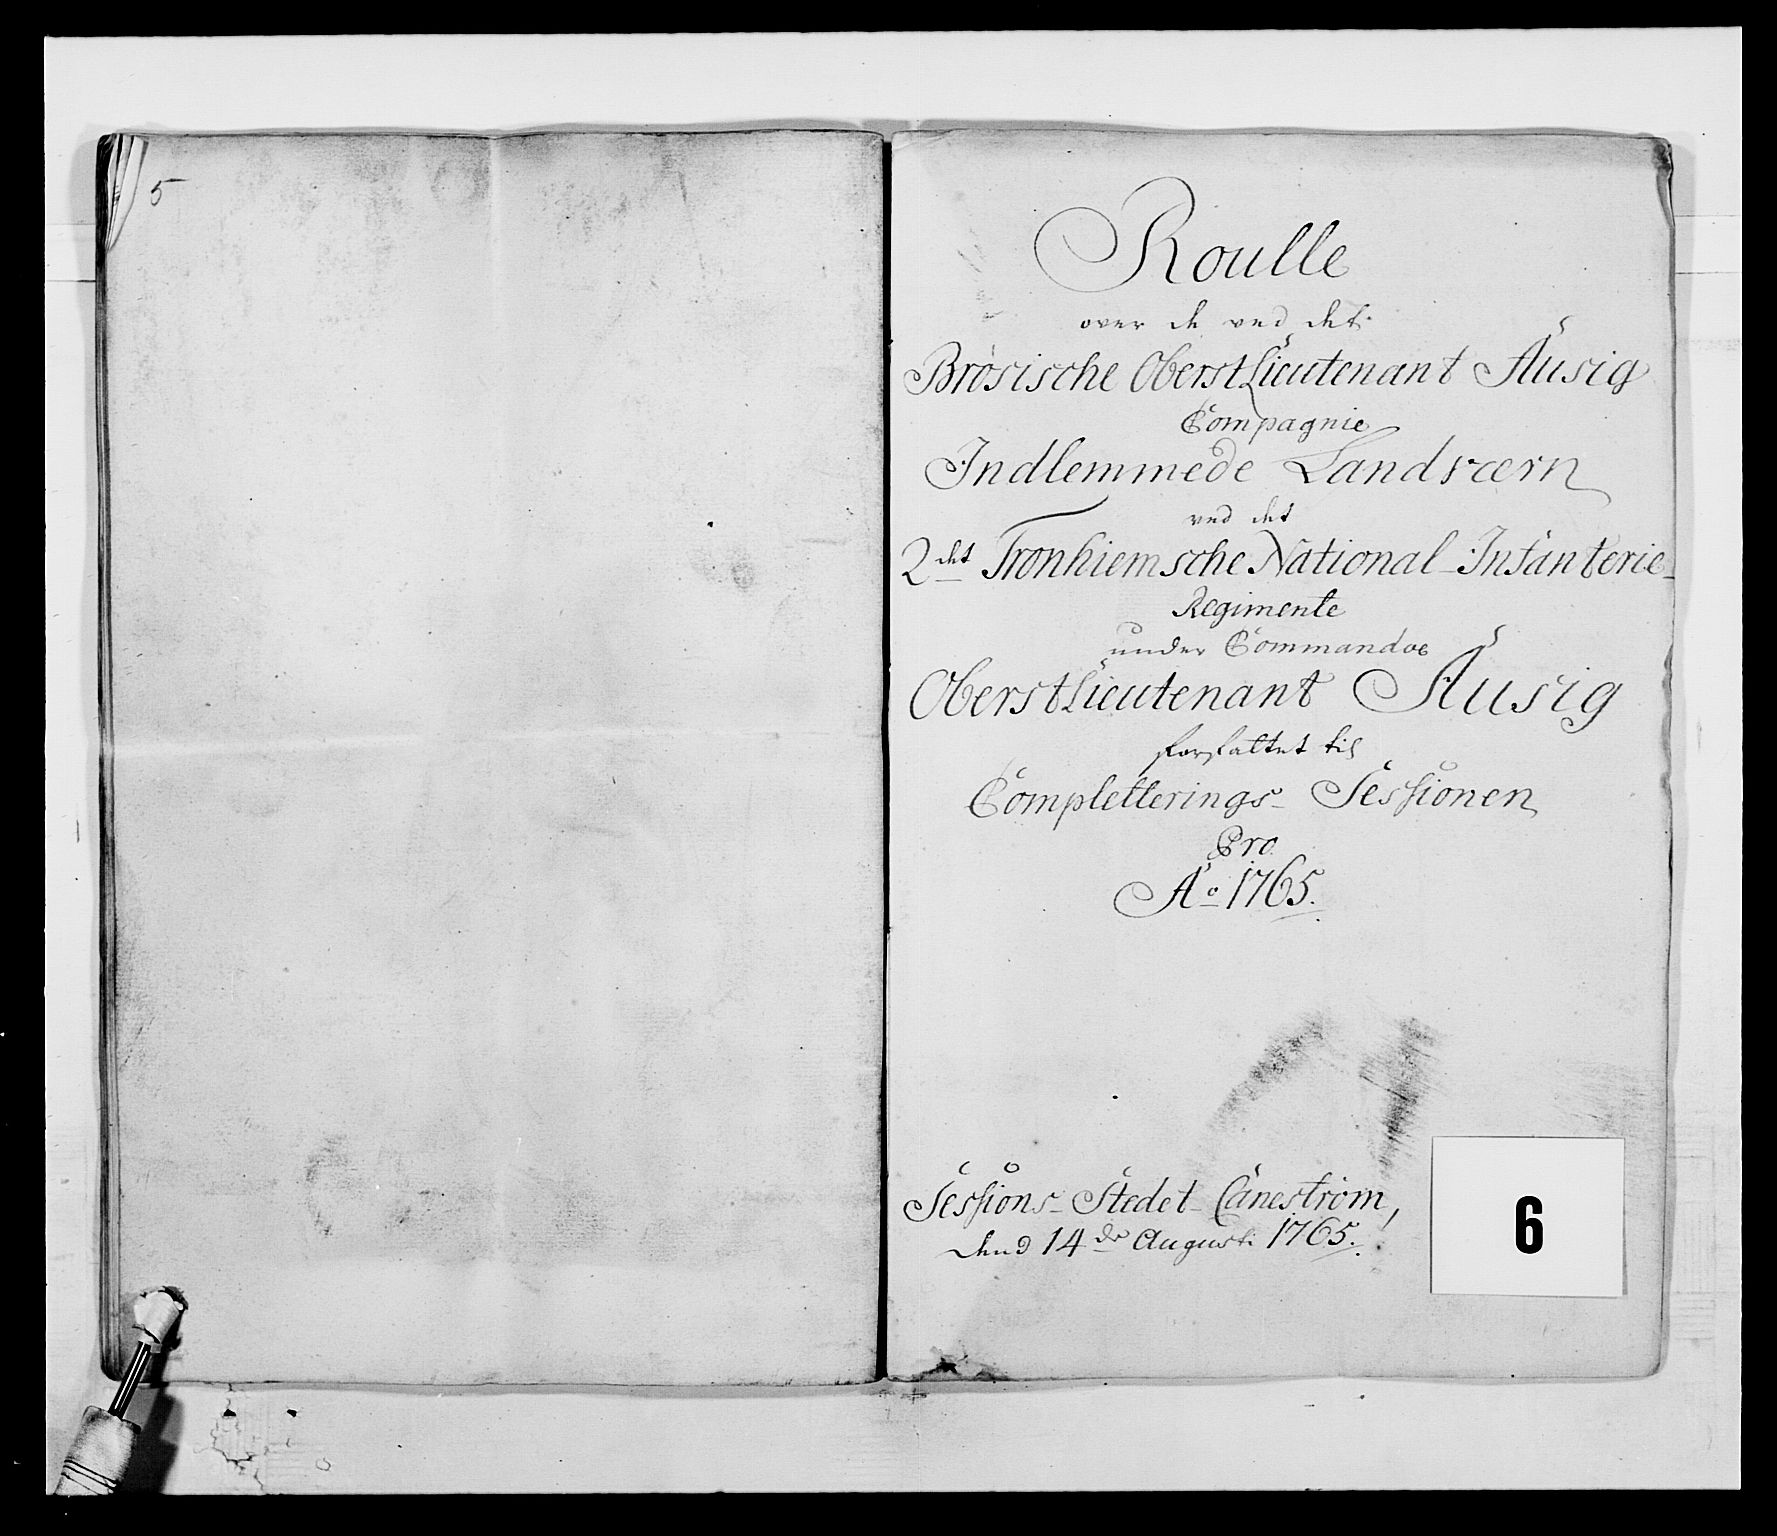 5
Roulle
over de ved det
Brösische OberstLieutenant Ausig
Compagnie
Indlemmede Landværn
ved det
2det Tronhiemsche National-Infanterie-
Regimente
under Commandoe
OberstLieutenant Ausig
forfattet til
Completterings-Sessionen
Pro
Ao 1765.
Sessions-Stedet Caneström,
dend 14de Augusti 1765.
6